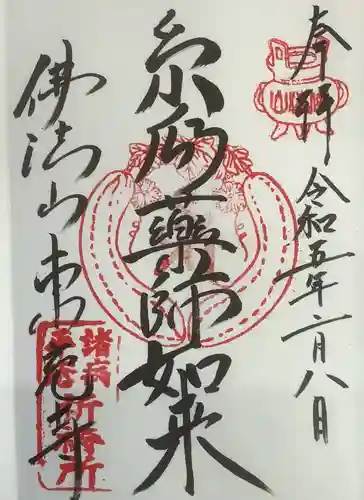 奉拝 令和五年二月八日
糸瓜藥師如来
佛法山 東充寺
諸病
祈祷所